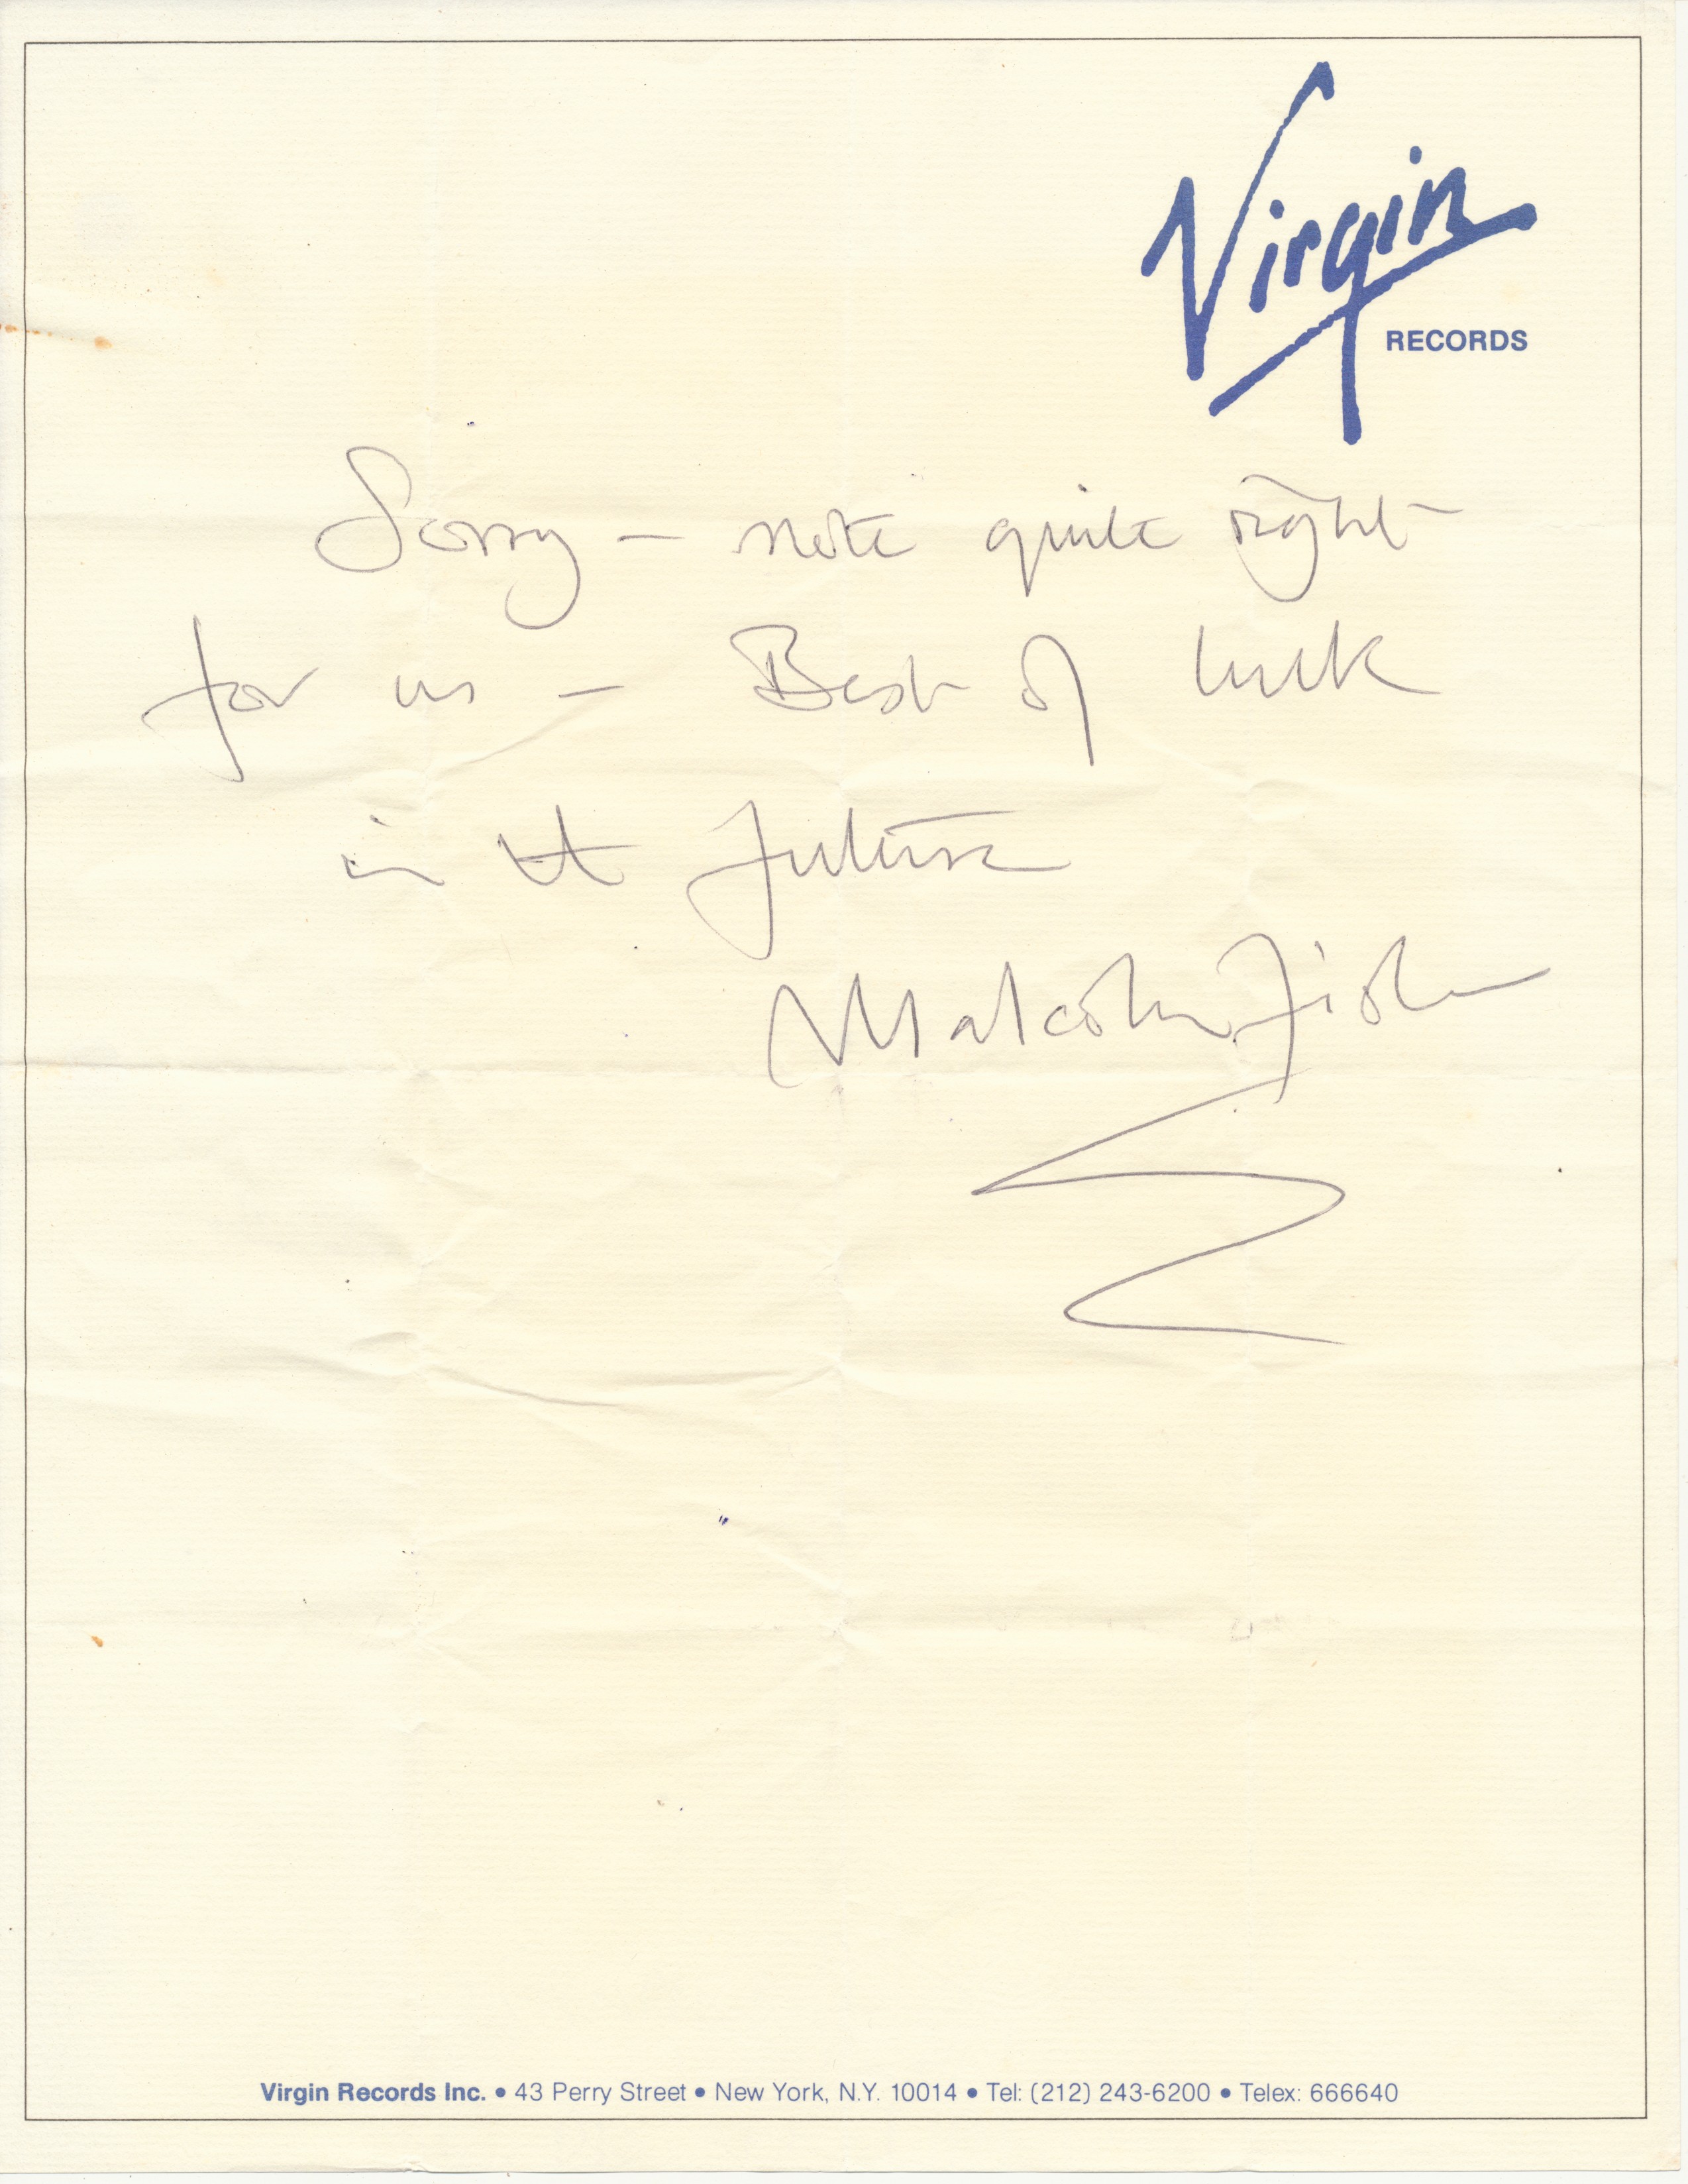 Virgin
RECORDS
Sorry – note quite right
for us – Best of luck
in the future
Malcolm
Virgin Records Inc. • 43 Perry Street • New York, N.Y. 10014 • Tel: (212) 243-6200 • Telex: 666640